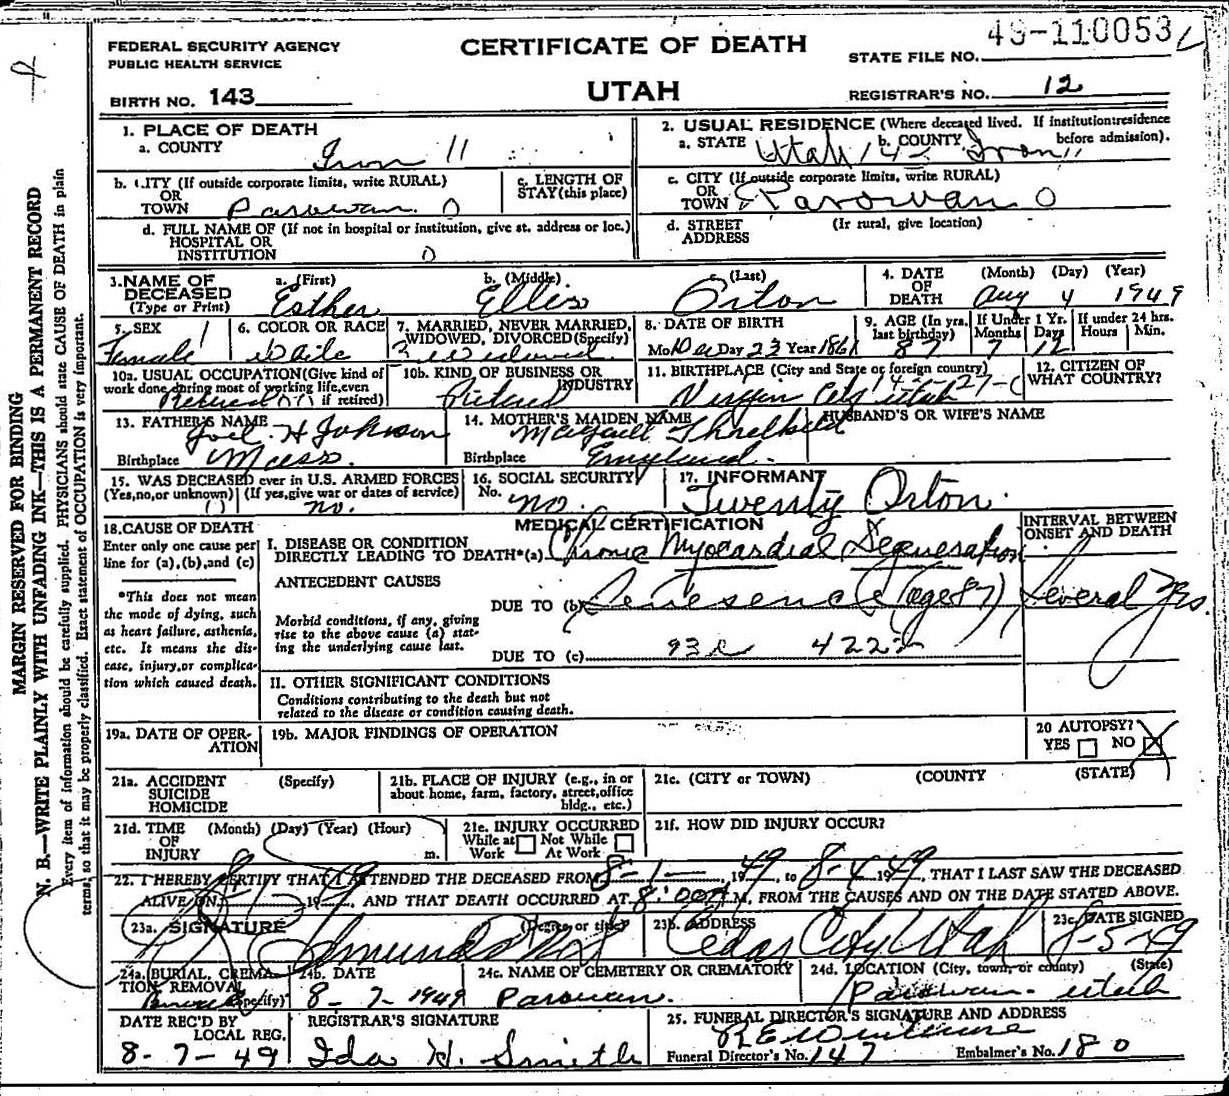 49-110053
FEDERAL SECURITY AGENCY
PUBLIC HEALTH SERVICE
CERTIFICATE OF DEATH
STATE FILE NO.
BIRTH NO. 143
UTAH
REGISTRAR'S NO. 12
MARGIN RESERVED FOR BINDING
N. B.—WRITE PLAINLY WITH UNFADING INK—THIS IS A PERMANENT RECORD
Every item of information should be carefully supplied. PHYSICIANS should state CAUSE OF DEATH in plain
terms, so that it may be properly classified. Exact statement of OCCUPATION is very important.
1. PLACE OF DEATH
a. COUNTY Iron 11
2. USUAL RESIDENCE (Where deceased lived. If institution: residence before admission).
a. STATE Utah 14- b. COUNTY Iron 11
b. CITY (If outside corporate limits, write RURAL)
OR
TOWN Parowan. 0
c. LENGTH OF
STAY (this place)
c. CITY (If outside corporate limits, write RURAL)
OR
TOWN Parowan 0
d. FULL NAME OF (If not in hospital or institution, give st. address or loc.)
HOSPITAL OR
INSTITUTION 0
d. STREET (If rural, give location)
ADDRESS
3. NAME OF DECEASED (Type or Print)
a. (First) Esther
b. (Middle) Elles
c. (Last) Orton
4. DATE OF DEATH (Month) (Day) (Year)
Aug 4 1949
5. SEX 1
Female
6. COLOR OR RACE
White
7. MARRIED, NEVER MARRIED, WIDOWED, DIVORCED (Specify)
3 Widowed.
8. DATE OF BIRTH
Mo. Dec Day 23 Year 1861
9. AGE (In yrs. last birthday) 87
If Under 1 Yr. Months 7 Days 12
If under 24 hrs. Hours Min.
10a. USUAL OCCUPATION (Give kind of work done during most of working life, even if retired)
Retired
10b. KIND OF BUSINESS OR INDUSTRY
Retired
11. BIRTHPLACE (City and State or foreign country)
Virgin City Utah
12. CITIZEN OF WHAT COUNTRY?
13. FATHER'S NAME
Joel H Johnson
Birthplace Mass.
14. MOTHER'S MAIDEN NAME
Margarett Threlkeld
Birthplace England.
HUSBAND'S OR WIFE'S NAME
15. WAS DECEASED ever in U.S. ARMED FORCES
(Yes, no, or unknown) (If yes, give war or dates of service)
no.
16. SOCIAL SECURITY
No. no.
17. INFORMANT
Twenty Orton.
18. CAUSE OF DEATH
Enter only one cause per line for (a), (b), and (c)
*This does not mean the mode of dying, such as heart failure, asthenia, etc. It means the disease, injury, or complication which caused death.
MEDICAL CERTIFICATION
INTERVAL BETWEEN ONSET AND DEATH
I. DISEASE OR CONDITION
DIRECTLY LEADING TO DEATH*(a) Chronic Myocardial Degeneration
ANTECEDENT CAUSES
DUE TO (b) Senesence (age 87) Several Yrs.
Morbid conditions, if any, giving rise to the above cause (a) stating the underlying cause last.
DUE TO (c) 93c 4222
II. OTHER SIGNIFICANT CONDITIONS
Conditions contributing to the death but not
related to the disease or condition causing death.
19a. DATE OF OPERATION
19b. MAJOR FINDINGS OF OPERATION
20 AUTOPSY?
YES NO X
21a. ACCIDENT (Specify)
SUICIDE
HOMICIDE
21b. PLACE OF INJURY (e.g., in or about home, farm, factory, street, office bldg., etc.)
21c. (CITY or TOWN) (COUNTY (STATE)
21d. TIME (Month) (Day) (Year) (Hour)
OF
INJURY m.
21e. INJURY OCCURRED
While at Work Not While At Work
21f. HOW DID INJURY OCCUR?
22. I HEREBY CERTIFY THAT I ATTENDED THE DECEASED FROM 8-1-, 1949, to 8-4-1949, THAT I LAST SAW THE DECEASED
ALIVE ON 19 , AND THAT DEATH OCCURRED AT 8:00 M, FROM THE CAUSES AND ON THE DATE STATED ABOVE.
23a. SIGNATURE (Degree or title)
23b. ADDRESS
Cedar City Utah
23c. DATE SIGNED
8-5-49
24a. BURIAL, CREMATION, REMOVAL (Specify)
24b. DATE
8-7-1949
24c. NAME OF CEMETERY OR CREMATORY
Parowan.
24d. LOCATION (City, town, or county) (State)
Parowan. Utah
DATE REC'D BY LOCAL REG.
8-7-49
REGISTRAR'S SIGNATURE
Ida H. Smith
25. FUNERAL DIRECTOR'S SIGNATURE AND ADDRESS
Funeral Director's No. 147 Embalmer's No. 180